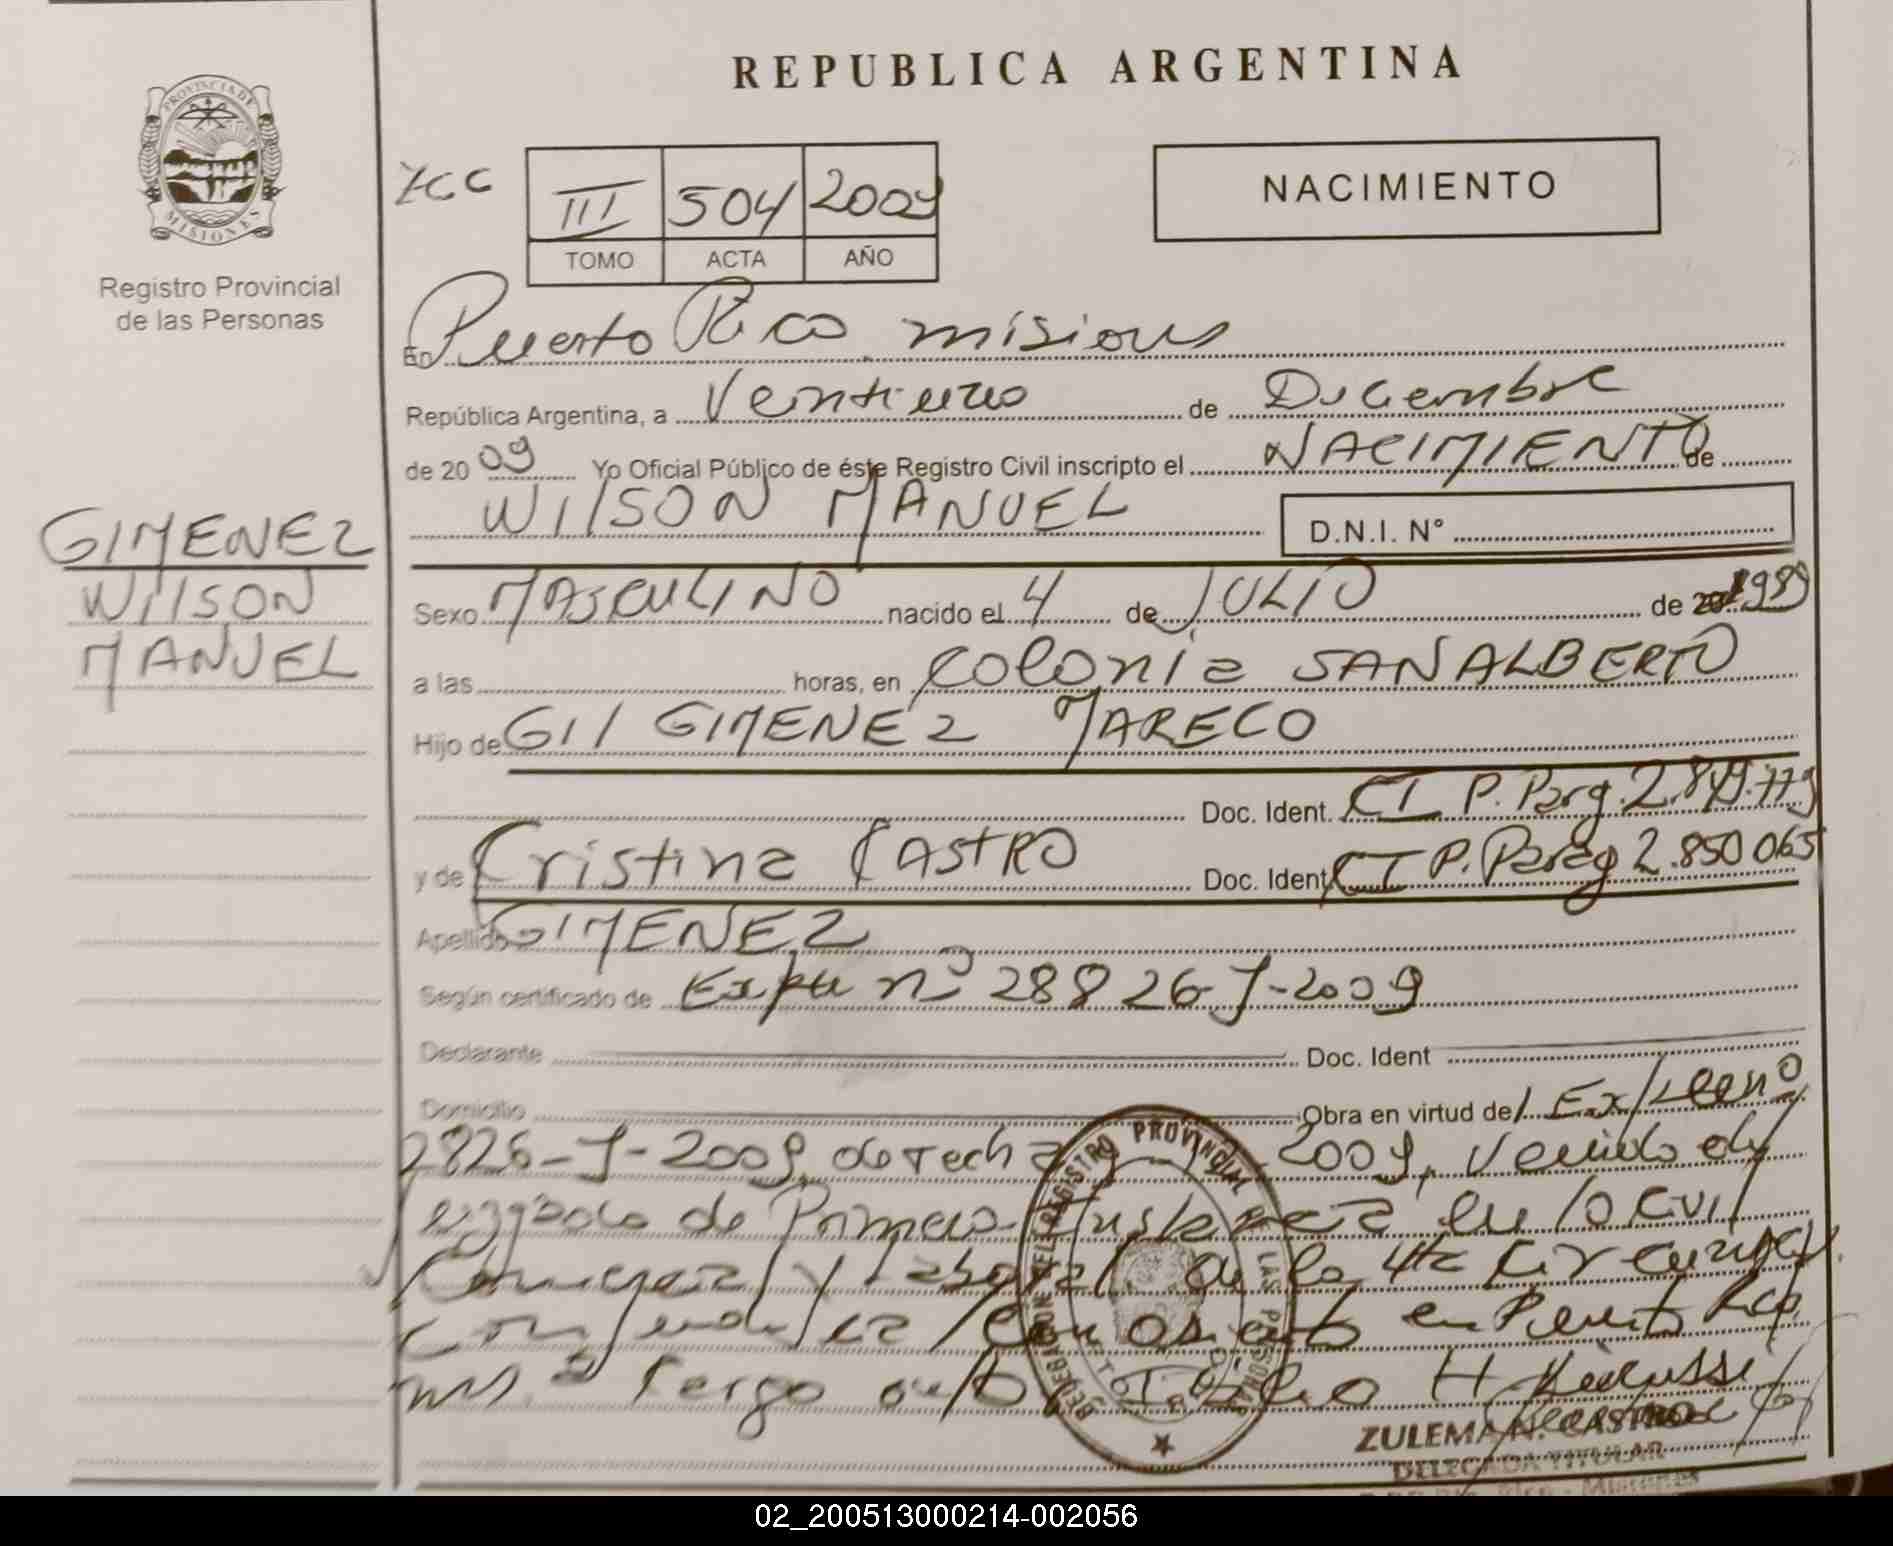 REPUBLICA ARGENTINA
PROVINCIA DE
MISIONES
Registro Provincial
de las Personas
III 504 2009
TOMO ACTA AÑO
NACIMIENTO
En Puerto Rico misiones
República Argentina, a Veintiuno de Diciembre
de 20 09 Yo Oficial Público de éste Registro Civil inscripto el NACIMIENTO de
WIlSON MANUEL D.N.I. N°
GIMENEZ
WIlSON
MANUEL
Sexo MASCULINO nacido el 4 de JULIO de 1989
a las horas, en colonia SAN ALBERTO
Hijo de GIl GIMENEZ MARECO
Doc. Ident. CI P. Parg. 2.849.779
y de Cristina CASTRO Doc. Ident CI P. Parag 2.850 065
Apellido GIMENEZ
Según certificado de Expte nº 28826-J-2009
Declarante Doc. Ident
Domicilio Obra en virtud del
2826-J-2009, de fecha 2009, Venido del
Juzgado de Primera Instancia en lo Civil
Comercial y Laboral de la 4ta
con asiento en Puerto Rico
a cargo del H.
REGISTRO PROVINCIAL DE LAS PERSONAS
ZULEMA N. CASTRO
DELEGADA TITULAR
02_200513000214-002056